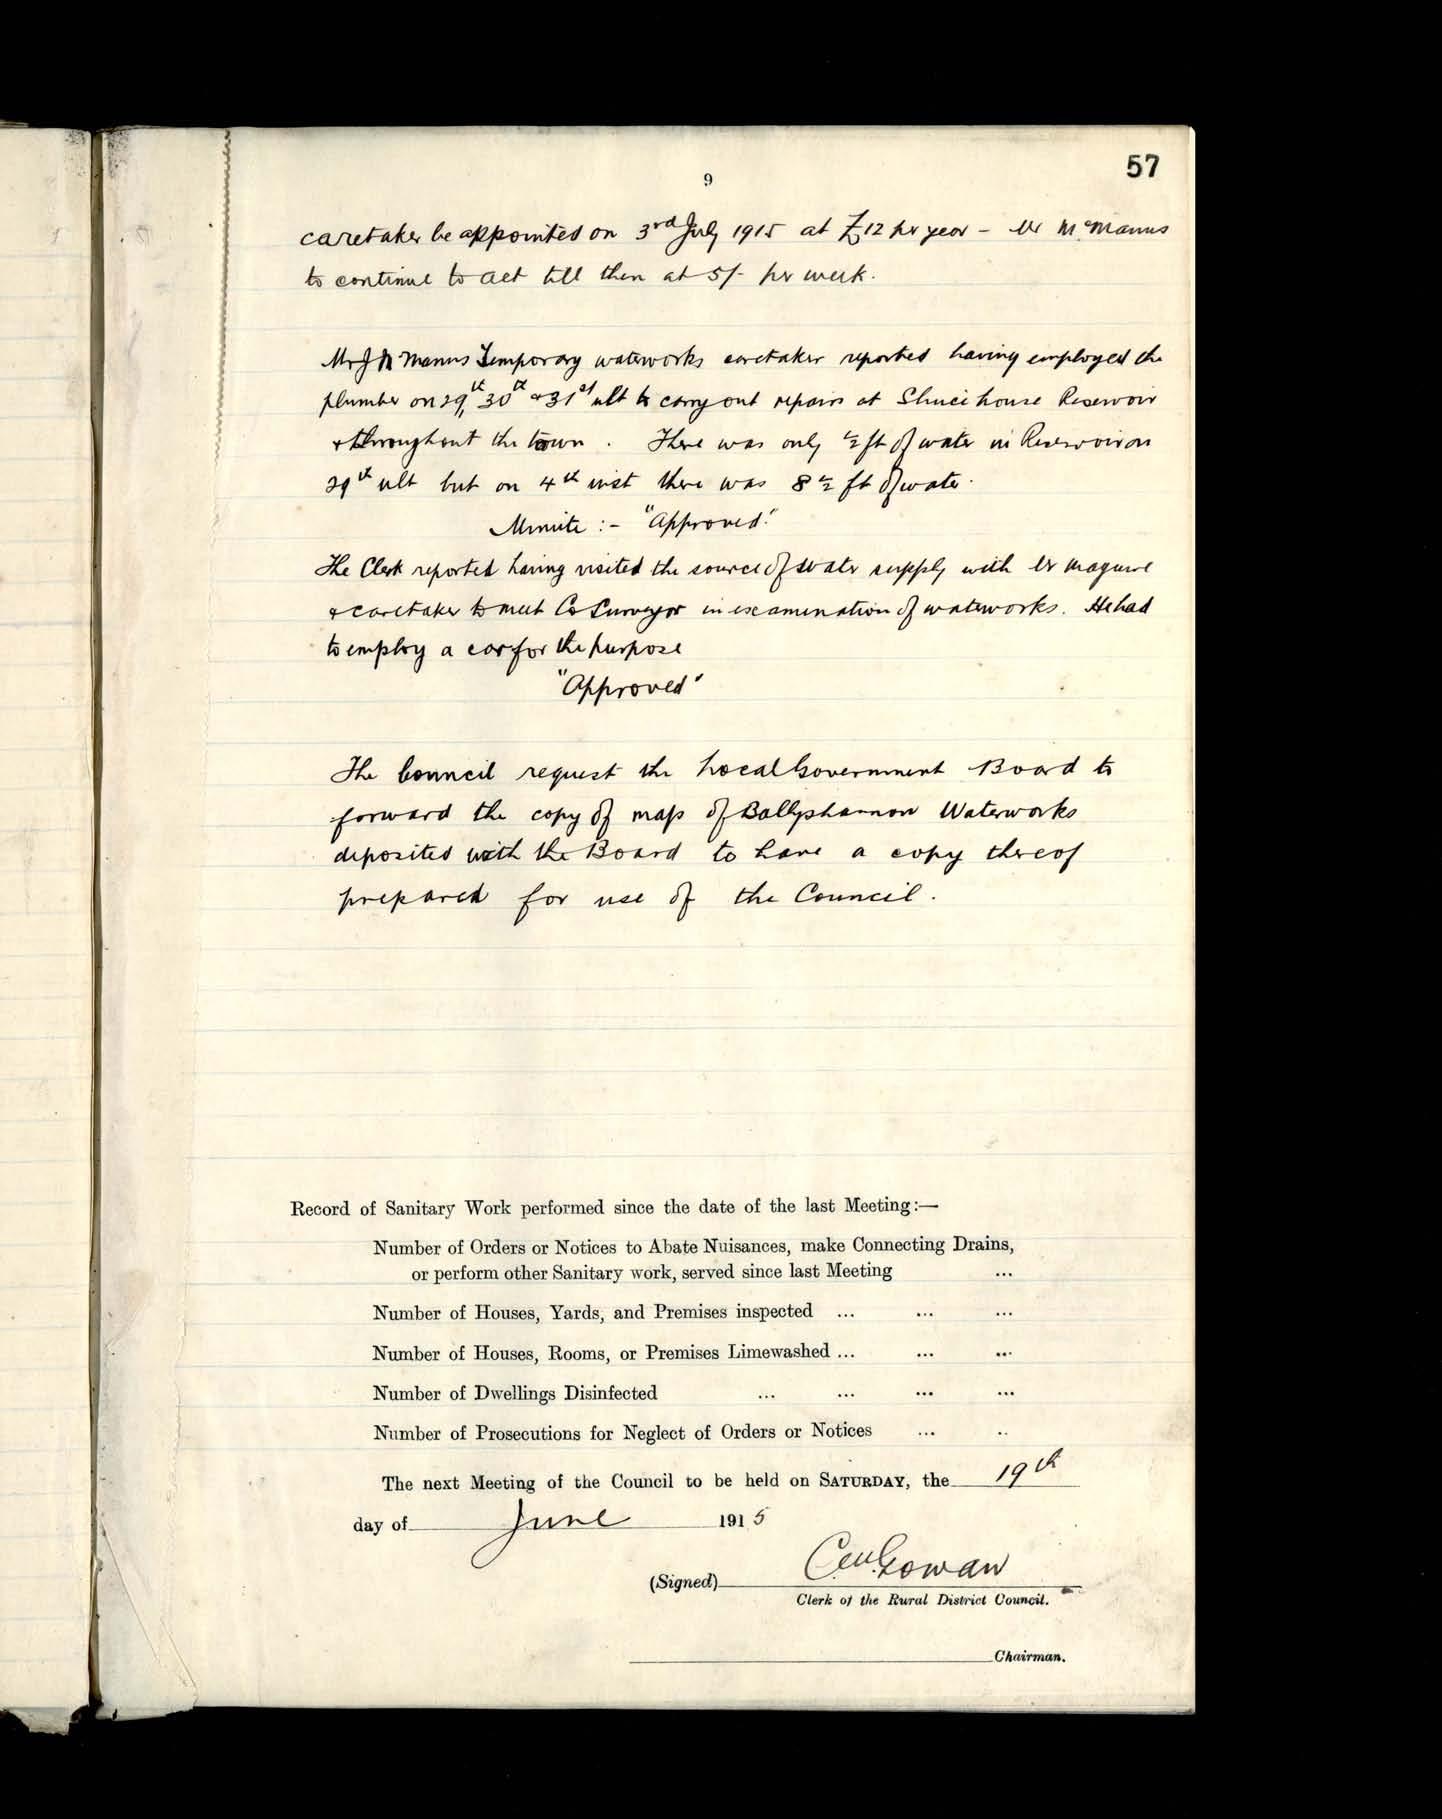 57
9
caretaker be appointed on 3rd July 1915 at £12 per year - Mr McManus
to continue to act till then at 5/- per week.
Mr J McManus Temporary waterworks caretaker reported having employed the
plumber on 29th, 30th & 31st ult to carry out repairs at Sluice house Reservoir
& throughout the town. There was only ½ ft of water in Reservoir on
29th ult but on 4th inst there was 8½ ft of water.
Minute :- "Approved."
The Clerk reported having visited the source of water supply with Mr Maguire
& caretaker to meet Co Surveyor in examination of waterworks. He had
to employ a car for the purpose
"Approved"
The Council request the Local Government Board to
forward the copy of map of Ballyshannon Waterworks
deposited with the Board to have a copy thereof
prepared for use of the Council.
Record of Sanitary Work performed since the date of the last Meeting:—
Number of Orders or Notices to Abate Nuisances, make Connecting Drains,
or perform other Sanitary work, served since last Meeting ...
Number of Houses, Yards, and Premises inspected ... ... ...
Number of Houses, Rooms, or Premises Limewashed ... ... ...
Number of Dwellings Disinfected ... ... ... ...
Number of Prosecutions for Neglect of Orders or Notices ... ..
The next Meeting of the Council to be held on SATURDAY, the 19th
day of June 1915
(Signed) Gowan
Clerk of the Rural District Council.
Chairman.